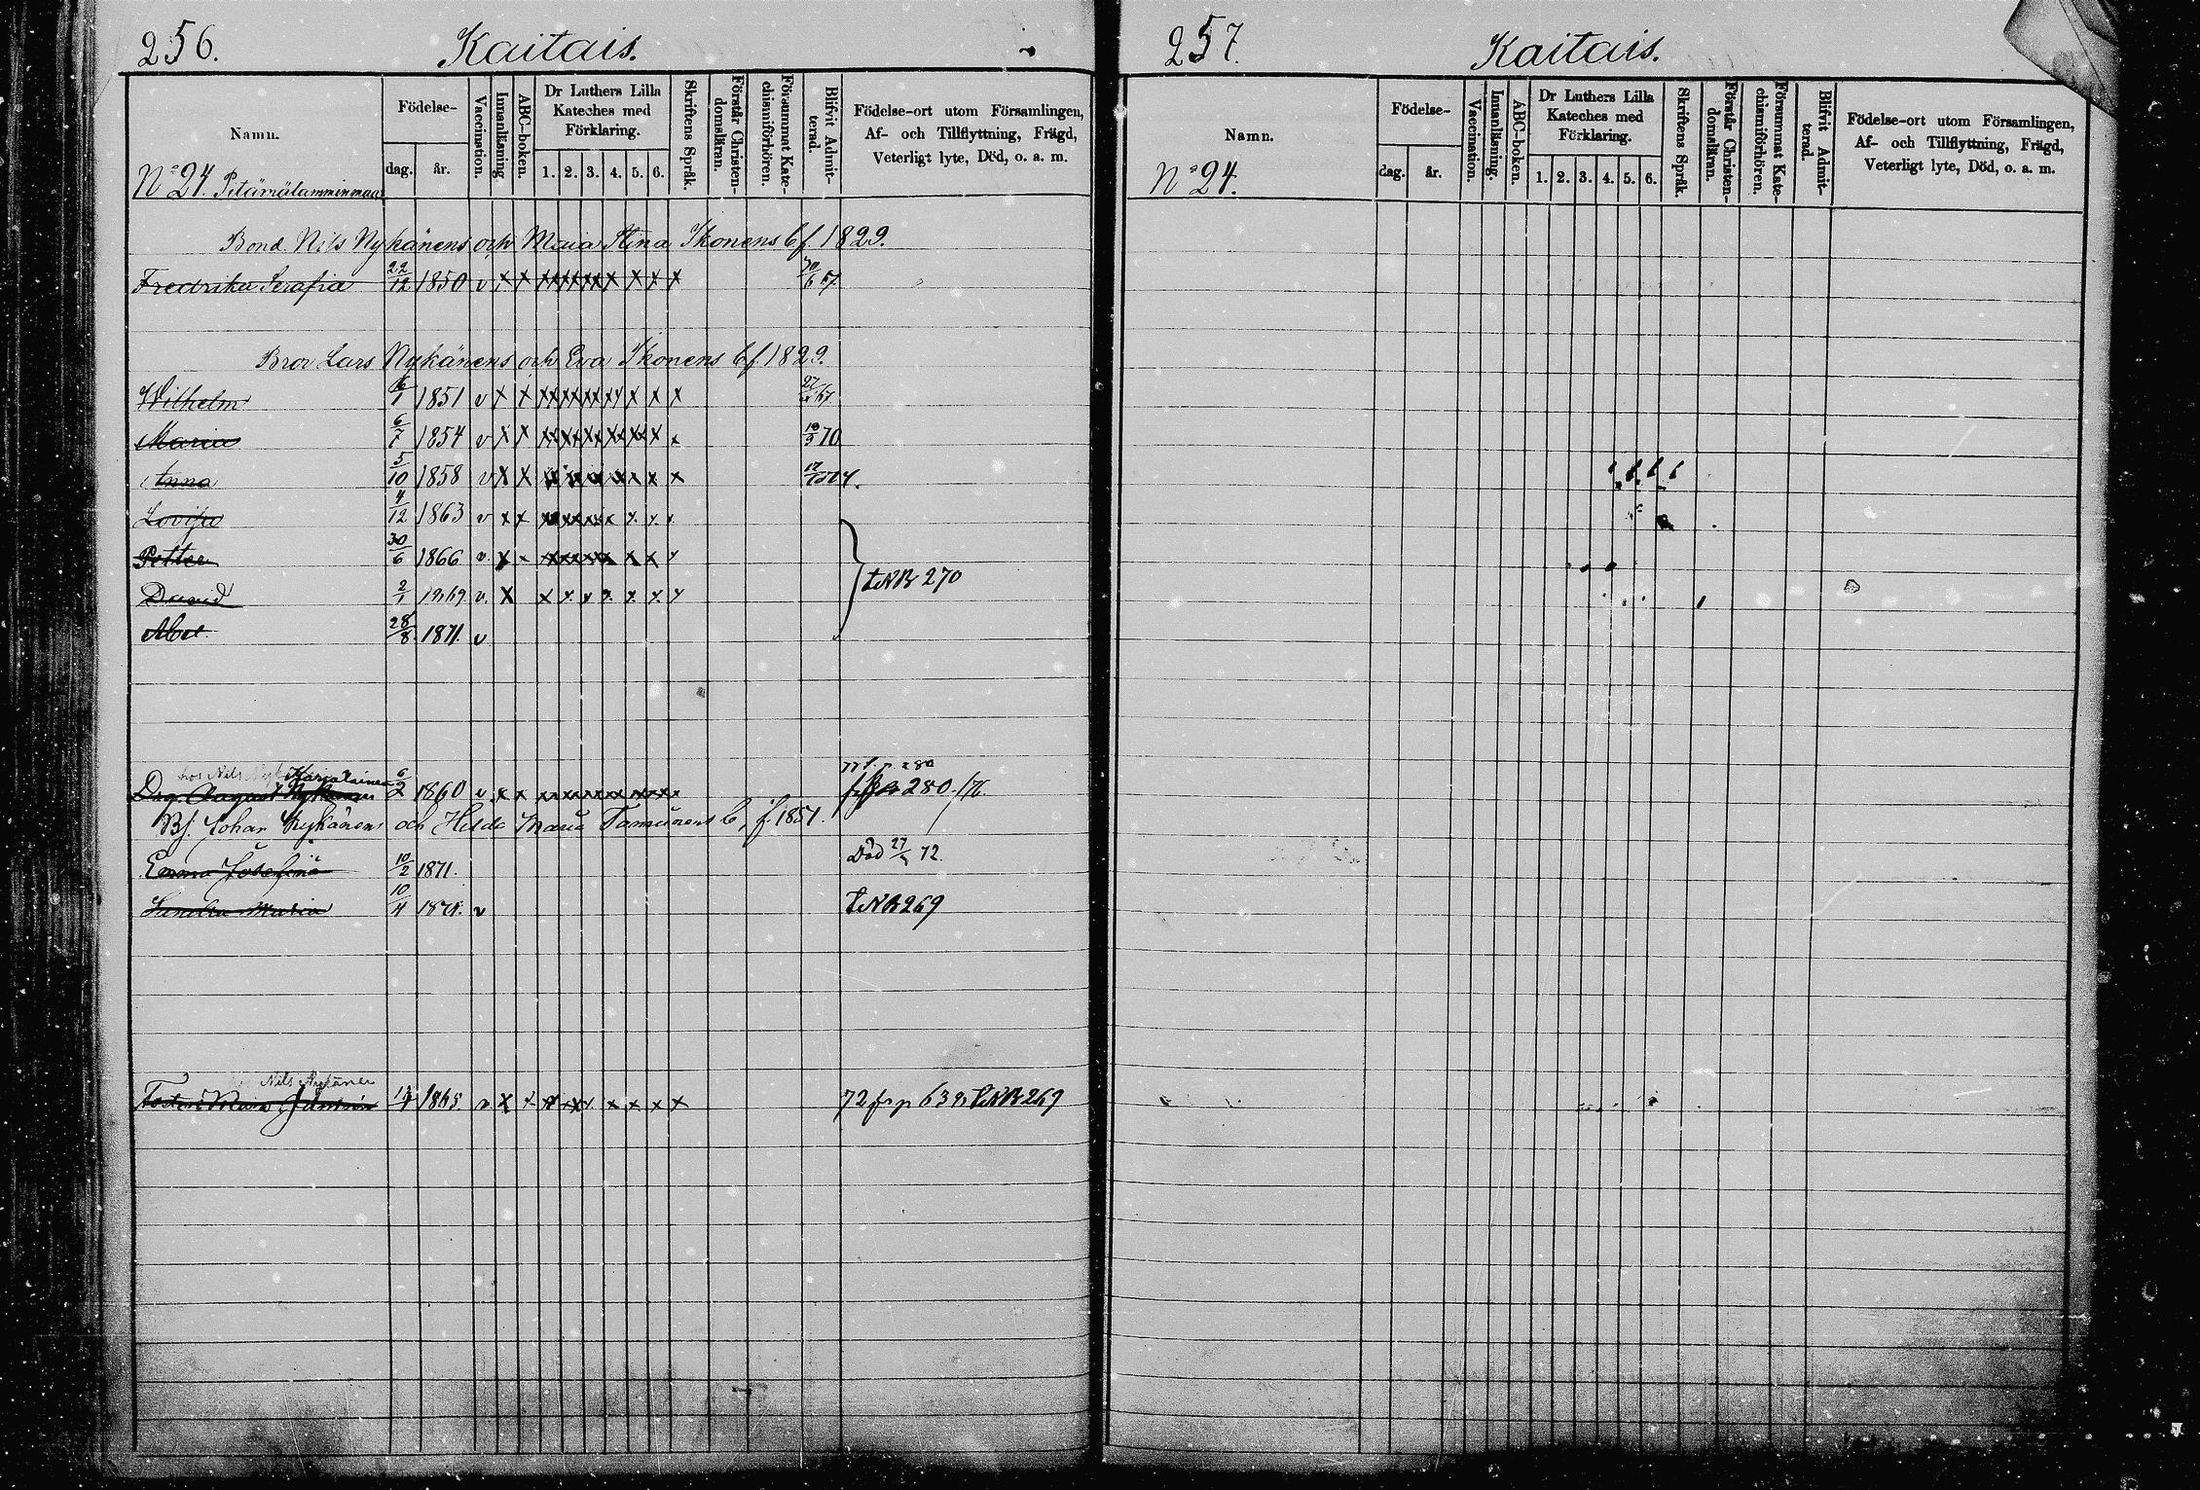 256. Kaitais.
Namn. Födelse- dag. år. Vaccination. Innanläsning. ABC-boken. Dr Luthers Lilla Kateches med Förklaring. 1. 2. 3. 4. 5. 6. Skriftens Språk. Förstår Christen-domsläran. Försummat Kate-chismiförhören. Blifvit Admit-terad. Födelse-ort utom Församlingen, Af- och Tillflyttning, Frägd, Veterligt lyte, Död, o. a. m.
N:o 24. Petäniälamminmaa
Bond. Nils Nykänens och Maia Stina Ikonens b. f. 1829.
Fredrika Serafia 22/12 1850 v x x x x x x x x x 30/6 67.
Bror Lars Nykänens och Eva Ikonens b. f. 1829.
Wilhelm 1851 v x x x x x x x x x 67
Maria 6/7 1854 v x x x x x x x x x 70
Anna 5/10 1858 v x x x x x x x x x
Lovisa 4/12 1863 v x x x x x x x x x
Petter 30/6 1866 v. x x x x x x x x x
David 2/1 1869 v. x x x x x x x x
t. N.B. 270
Abel 28/8 1871. v
Karjalainen
Drg. August Nykänen 6/2 1860 v x x x x x x x x x 280
Bs. Johan Nykänens och Hilda Maria b. f. 1851.
Emma Josefina 10/2 1871. Död 27/ 72.
Maria 10/4 v t. N.B. 269
Nils Nykänen
1865 v x x x x x x x x x 72 fr. p. 639 t. N.B. 269
257. Kaitais.
Namn. Födelse- dag. år. Vaccination. Innanläsning. ABC-boken. Dr Luthers Lilla Kateches med Förklaring. 1. 2. 3. 4. 5. 6. Skriftens Språk. Förstår Christen-domsläran. Försummat Kate-chismiförhören. Blifvit Admit-terad. Födelse-ort utom Församlingen, Af- och Tillflyttning, Frägd, Veterligt lyte, Död, o. a. m.
N:o 24.